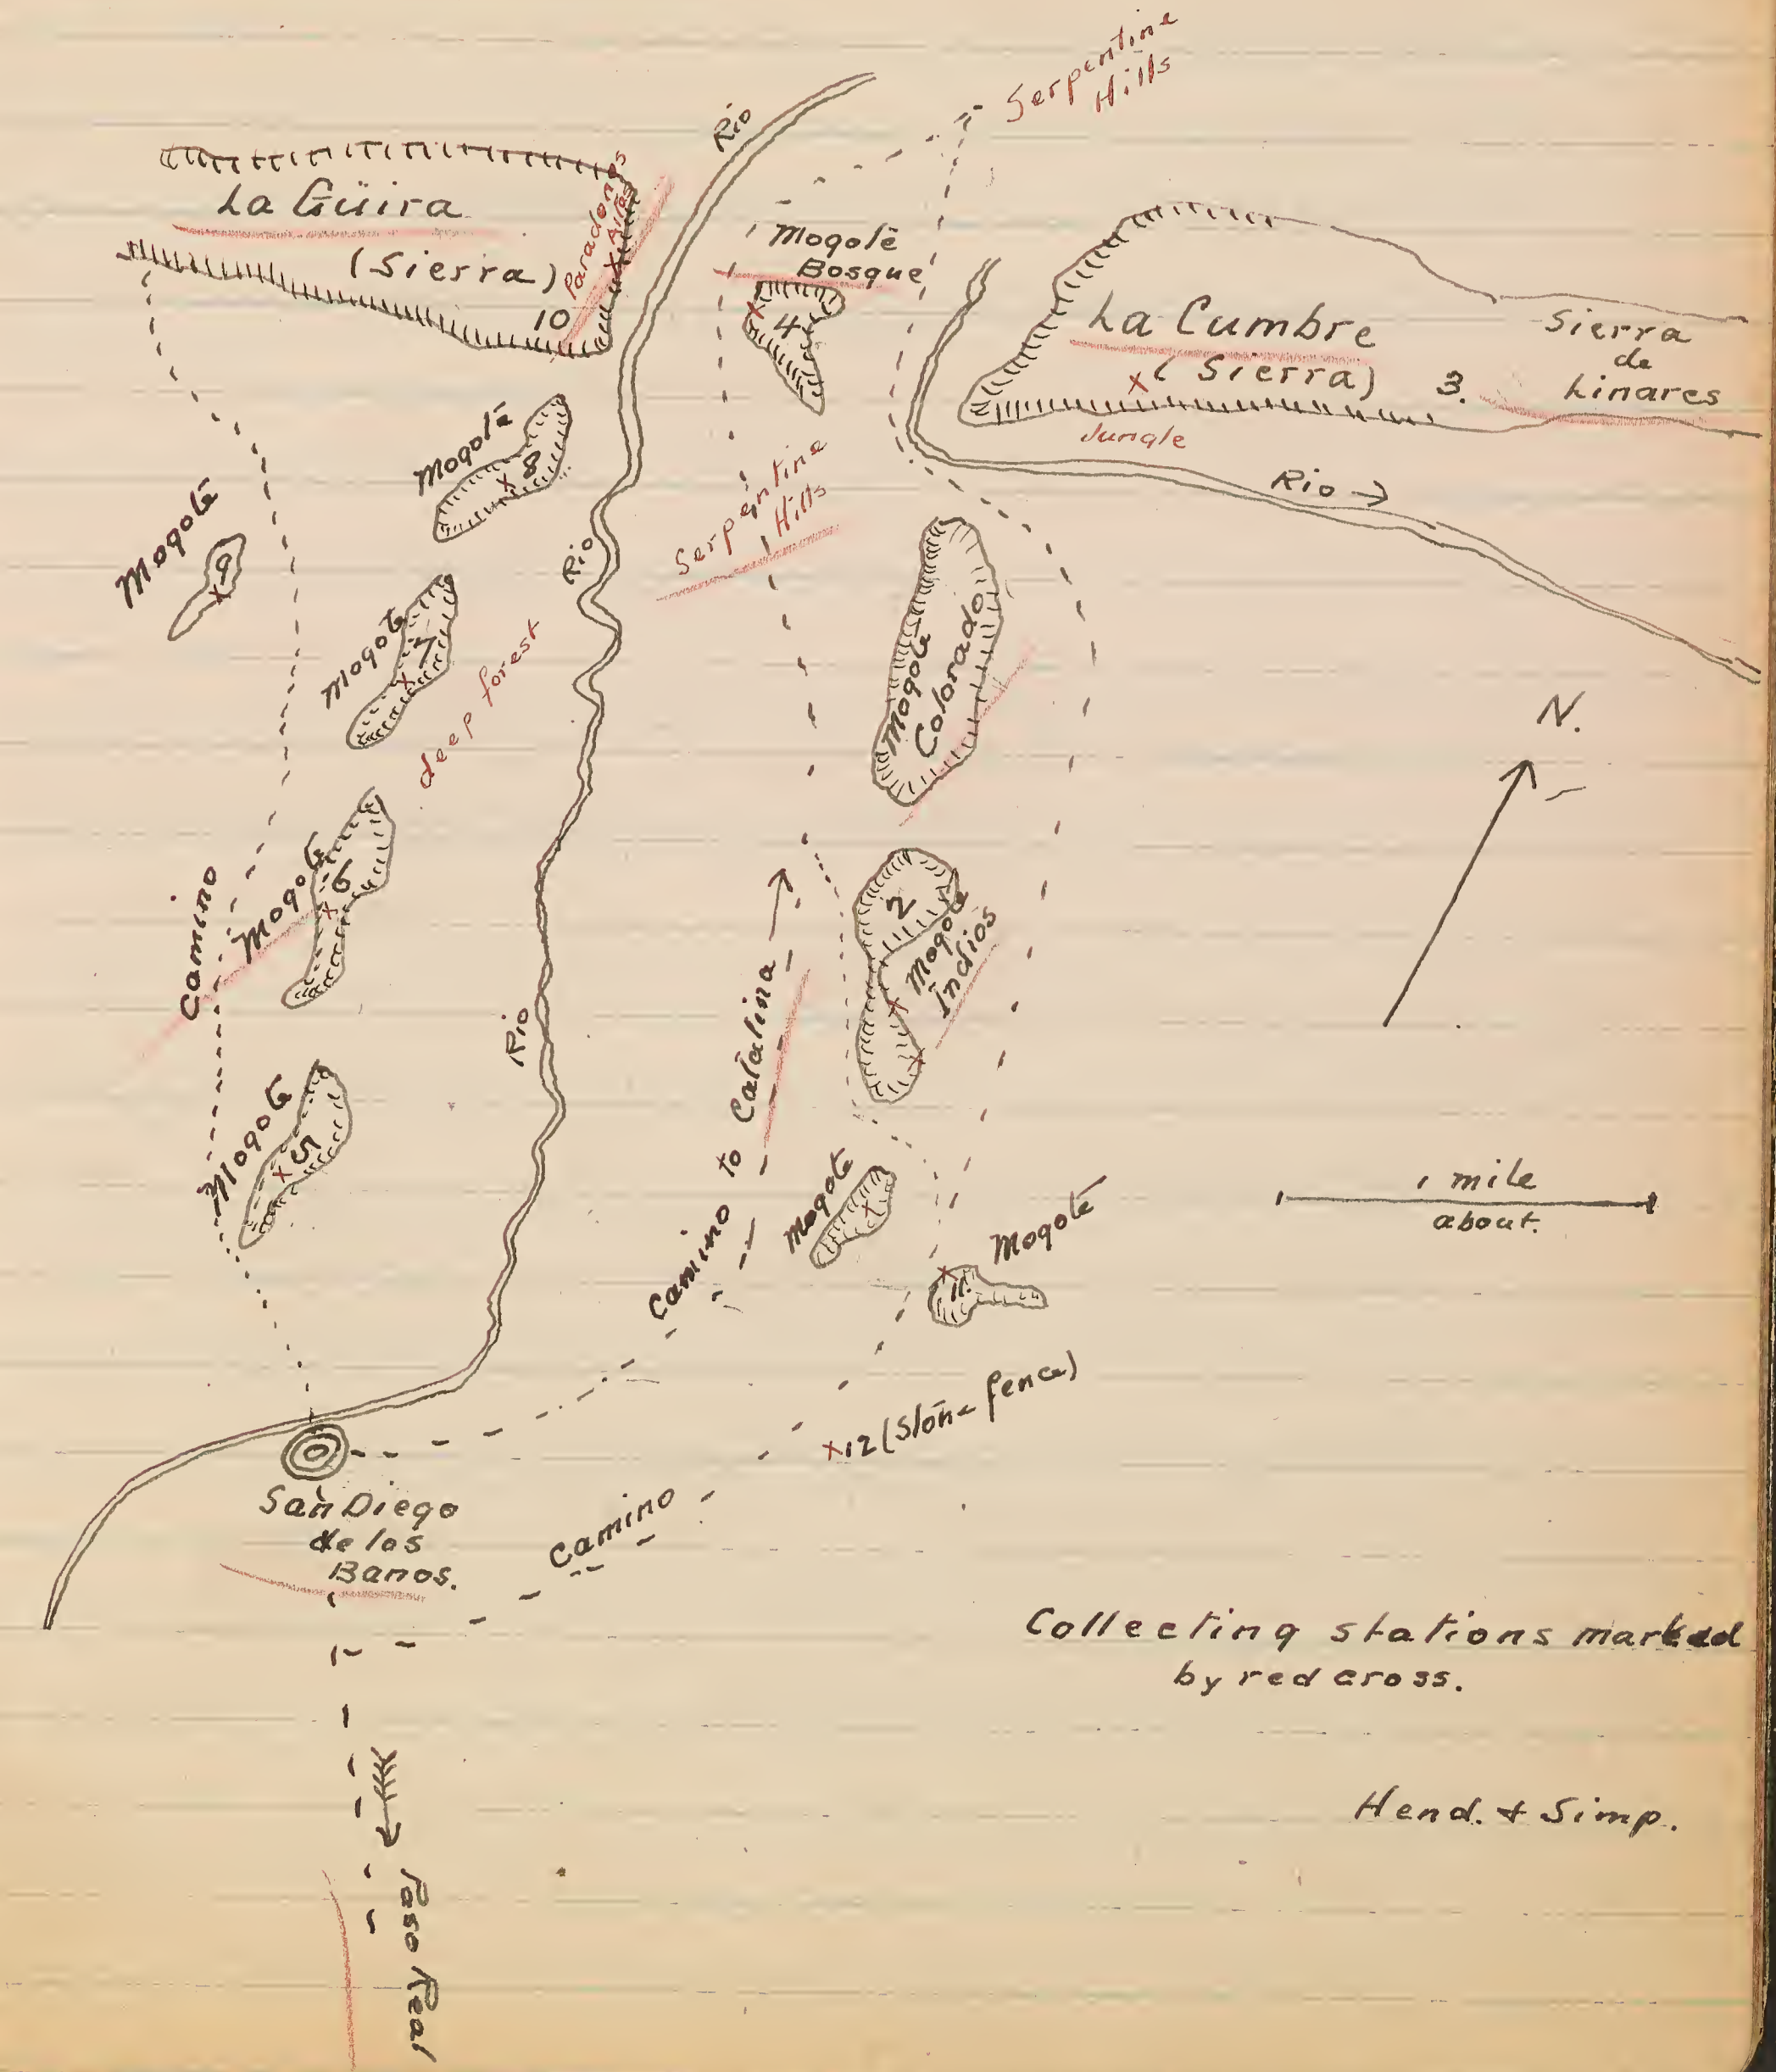 Serpentine
Hills
Rio
La Güira
(Sierra)
10
Paradones
Altes
Mogote
Bosque
4
La Cumbre
(Sierra)
3.
Sierra
de
Linares
Jungle
Rio →
Mogote
8
Mogote
9
Serpentine
Hills
Rio
Mogote
7
deep forest
Mogote
Colorado
N.
Mogote
6
Camino
2
Mogote
Indios
Rio
Camino to Catalina
Mogote
5
Mogote
1
Mogote
11.
1 mile
about.
x12 (Stone fence)
San Diego
de los
Banos.
Camino
Collecting stations marked
by red cross.
Hend. & Simp.
Paso Real